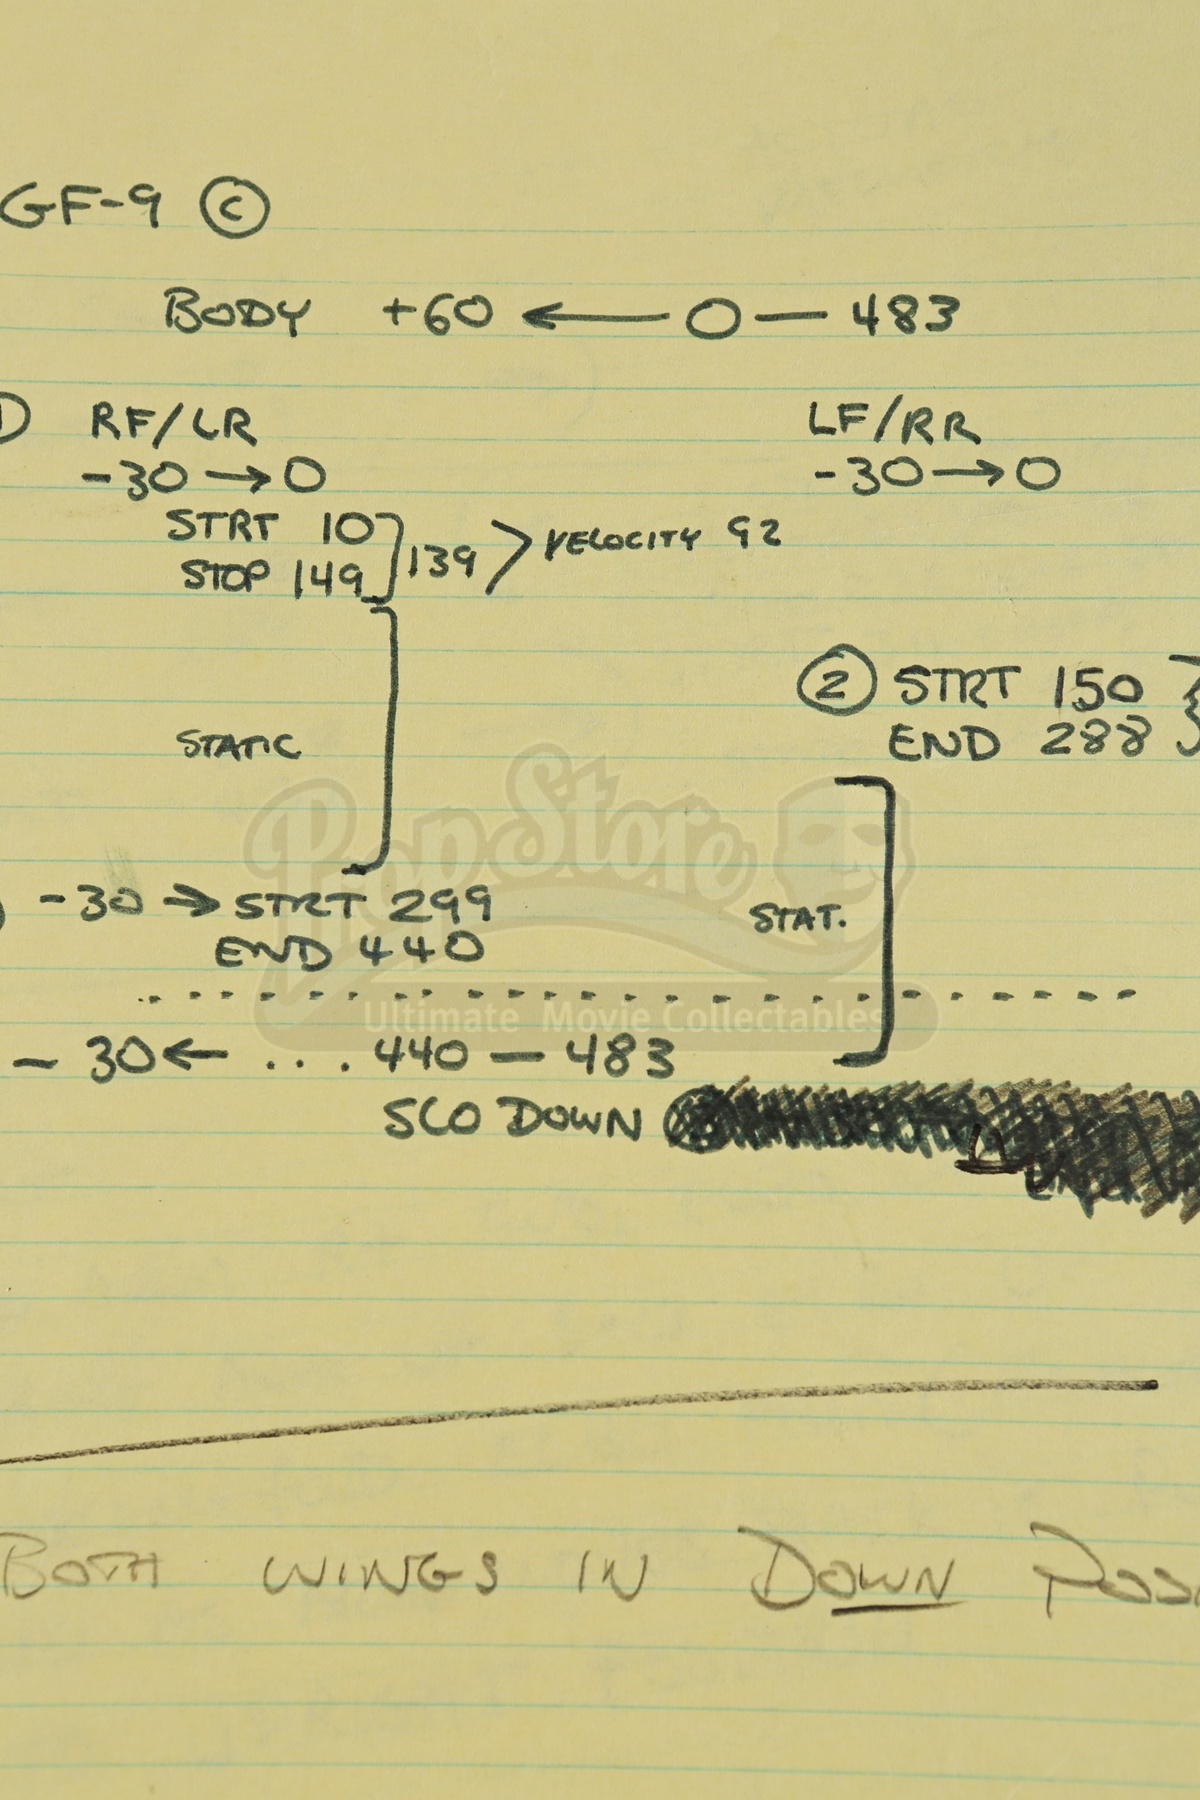 GF-9 Ⓒ
BODY +60 ← 0 — 483
RF/LR LF/RR
-30 → 0 -30 → 0
STRT 10
STOP 149 139 > VELOCITY 92
② STRT 150
END 288
STATIC
-30 → STRT 299
END 440
STAT.
- 30 ← ... 440 — 483
SLO DOWN
BOTH WINGS IN DOWN
PropStore
Ultimate Movie Collectables